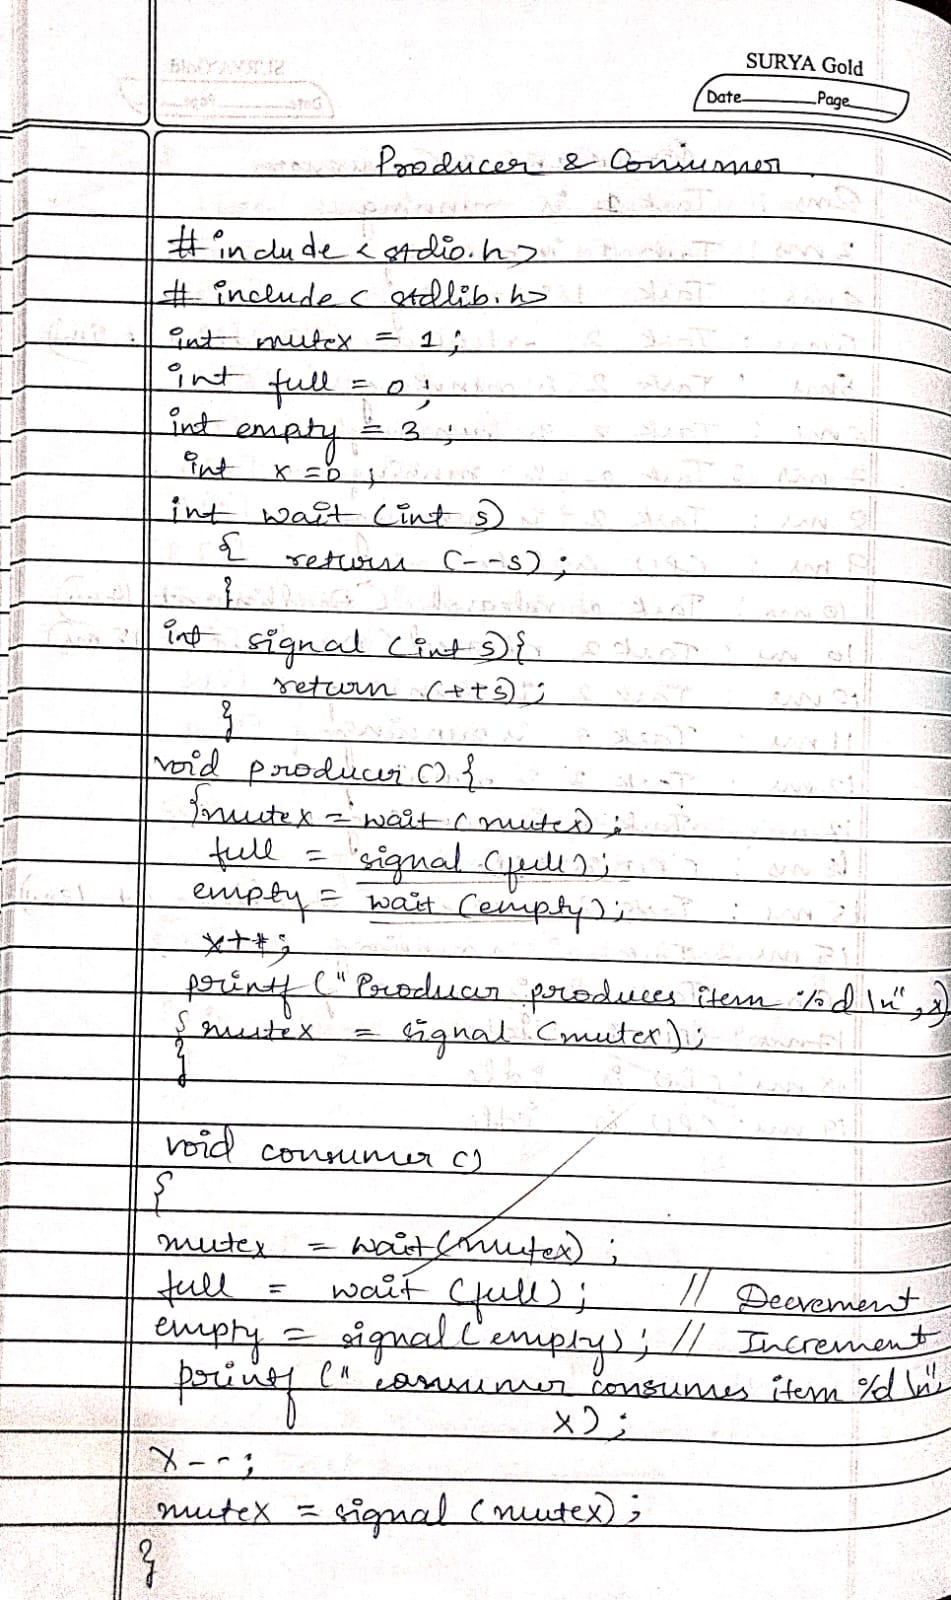 SURYA Gold
Date Page
Producer & Consumer
# include < stdio.h >
# include < stdlib.h>
int mutex = 1;
int full = 0;
int empty = 3;
int x = 0;
int wait (int s)
{ return (--s);
}
int signal (int s) {
return (++s);
}
void producer () {
{mutex = wait (mutex);
full = signal (full);
empty = wait (empty);
x++;
printf ("Producer produces item %d \n", x)
{ mutex = signal (mutex);
}
void consumer ()
{
mutex = wait (mutex);
full = wait (full); // Decrement
empty = signal (empty); // Increment
printf (" consumer consumes item %d \n",
x);
x--;
mutex = signal (mutex);
}